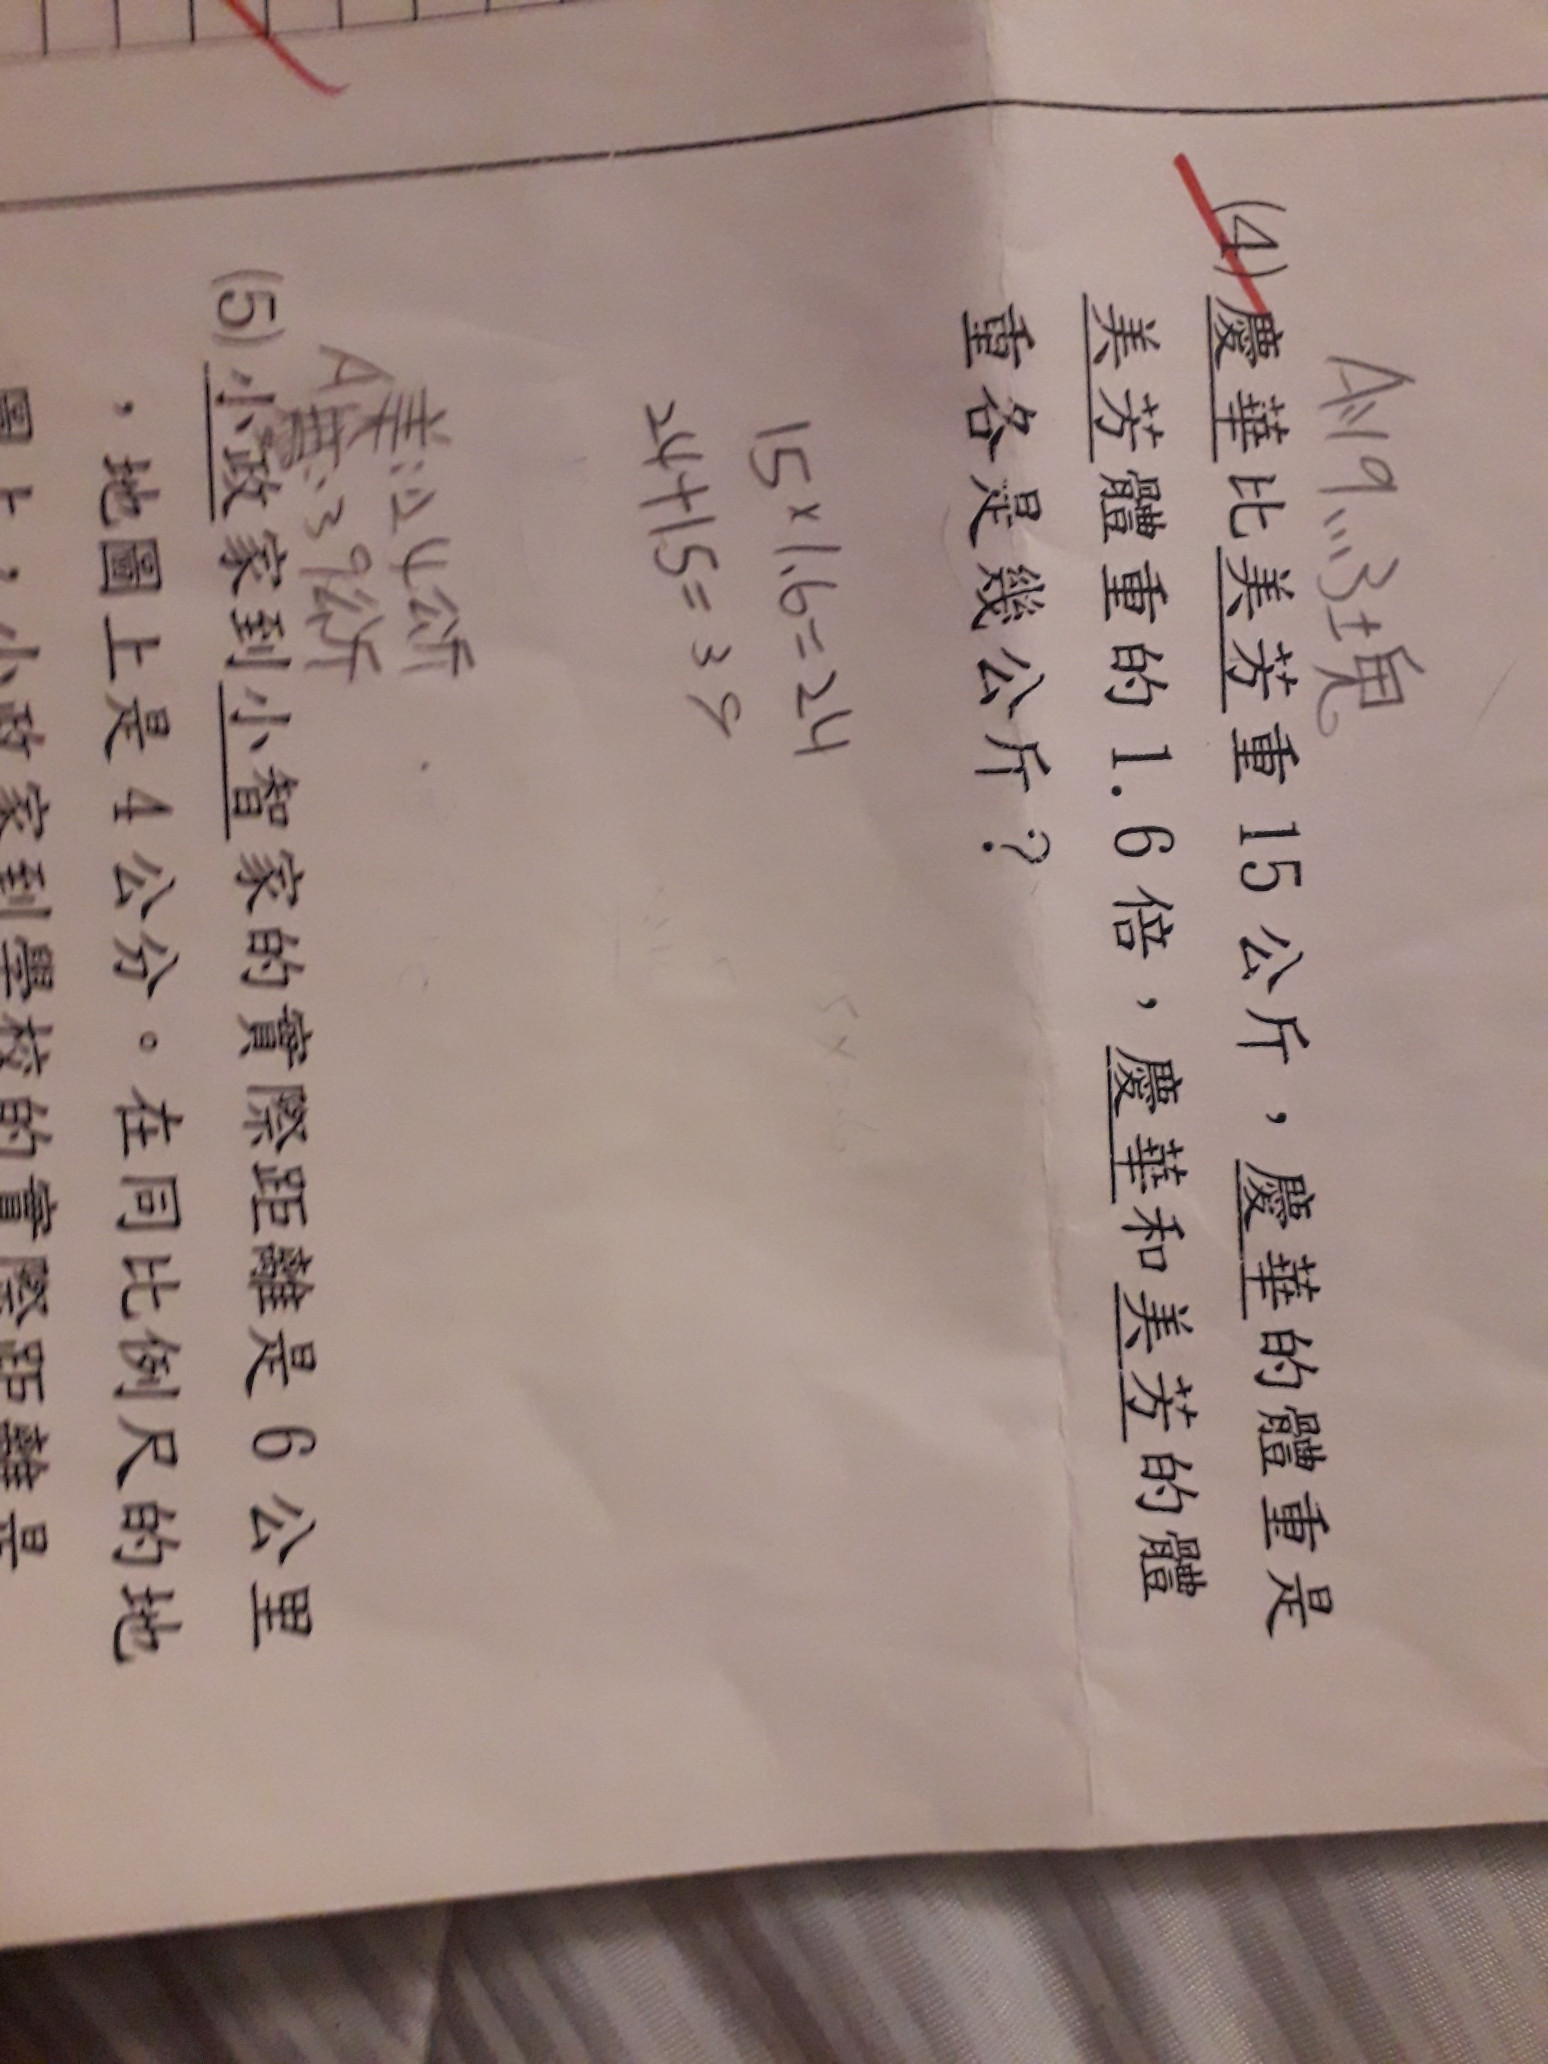 A:19...3塊
(4)慶華比美芳重15公斤，慶華的體重是
美芳體重的1.6倍，慶華和美芳的體
重各是幾公斤？
15×1.6=24
24+15=39
美:24公斤
A慶:39公斤
(5)小政家到小智家的實際距離是6公里
，地圖上是4公分。在同比例尺的地
圖上，小政家到學校的實際距離是